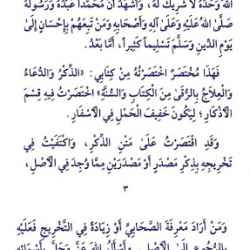 اللهُ وَحْدَهُ لَا شَرِيكَ لَهُ، وَأَشْهَدُ أَنَّ مُحَمَّداً عَبْدُهُ وَرَسُولُهُ
صَلَّى اللهُ عَلَيْهِ وَعَلَى آلِهِ وَأَصْحَابِهِ وَمَنْ تَبِعَهُمْ بِإِحْسَانٍ إِلَى
يَوْمِ الدِّينِ وَسَلَّمَ تَسْلِيماً كَثِيراً، أَمَّا بَعْدُ.
فَهَذَا مُخْتَصَرٌ اخْتَصَرْتُهُ مِنْ كِتَابِي: «الذِّكْرُ وَالدُّعَاءُ
وَالْعِلَاجُ بِالرُّقَى مِنَ الْكِتَابِ وَالسُّنَّةِ» اخْتَصَرْتُ فِيهِ قِسْمَ
الْأَذْكَارِ؛ لِيَكُونَ خَفِيفَ الْحَمْلِ فِي الْأَسْفَارِ.
وَقَدِ اقْتَصَرْتُ عَلَى مَتْنِ الذِّكْرِ، وَاكْتَفَيْتُ فِي
تَخْرِيجِهِ بِذِكْرِ مَصْدَرٍ أَوْ مَصْدَرَيْنِ مِمَّا وُجِدَ فِي الْأَصْلِ،
٣
وَمَنْ أَرَادَ مَعْرِفَةَ الصَّحَابِيِّ أَوْ زِيَادَةً فِي التَّخْرِيجِ فَعَلَيْهِ